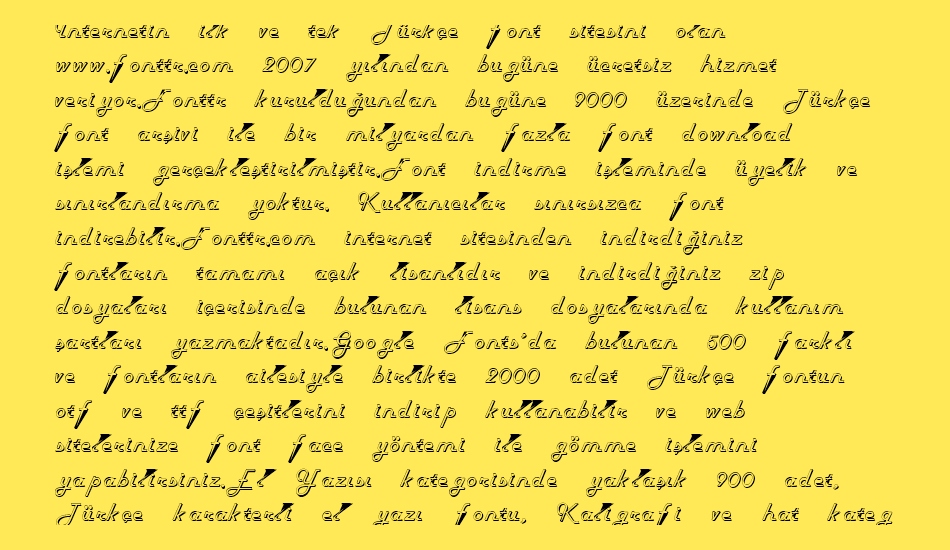 internetin ilk ve tek Türkçe font sitesini olan
www.fonttr.com 2007 yılından bugüne ücretsiz hizmet
veriyor.Fonttr kurulduğundan bugüne 9000 üzerinde Türkçe
font arşivi ile bir milyardan fazla font download
işlemi gerçekleştirilmiştir.Font indirme işleminde üyelik ve
sınırlandırma yoktur. Kullanıcılar sınırsızca font
indirebilir.Fonttr.com internet sitesinden indirdiğiniz
fontların tamamı açık lisanlıdır ve indirdiğiniz zip
dosyaları içerisinde bulunan lisans dosyalarında kullanım
şartları yazmaktadır.Google Fonts'da bulunan 500 farkli
ve fontların ailesiyle birlikte 2000 adet Türkçe fontun
otf ve ttf çeşitlerini indirip kullanabilir ve web
sitelerinize font face yöntemi ile gömme işlemini
yapabilirsiniz.El Yazısı kategorisinde yaklaşık 900 adet,
Türkçe karakterli el yazı fontu, Kaligrafi ve hat kateg